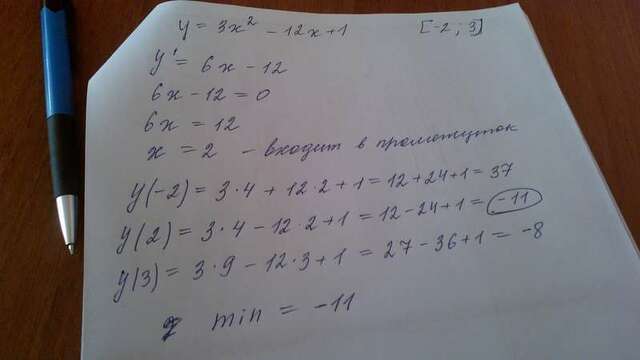 y = 3x² - 12x + 1 [-2; 3]
y' = 6x - 12
6x - 12 = 0
6x = 12
x = 2 - входит в промежуток
y(-2) = 3·4 + 12·2 + 1 = 12 + 24 + 1 = 37
y(2) = 3·4 - 12·2 + 1 = 12 - 24 + 1 = -11
y(3) = 3·9 - 12·3 + 1 = 27 - 36 + 1 = -8
min = -11